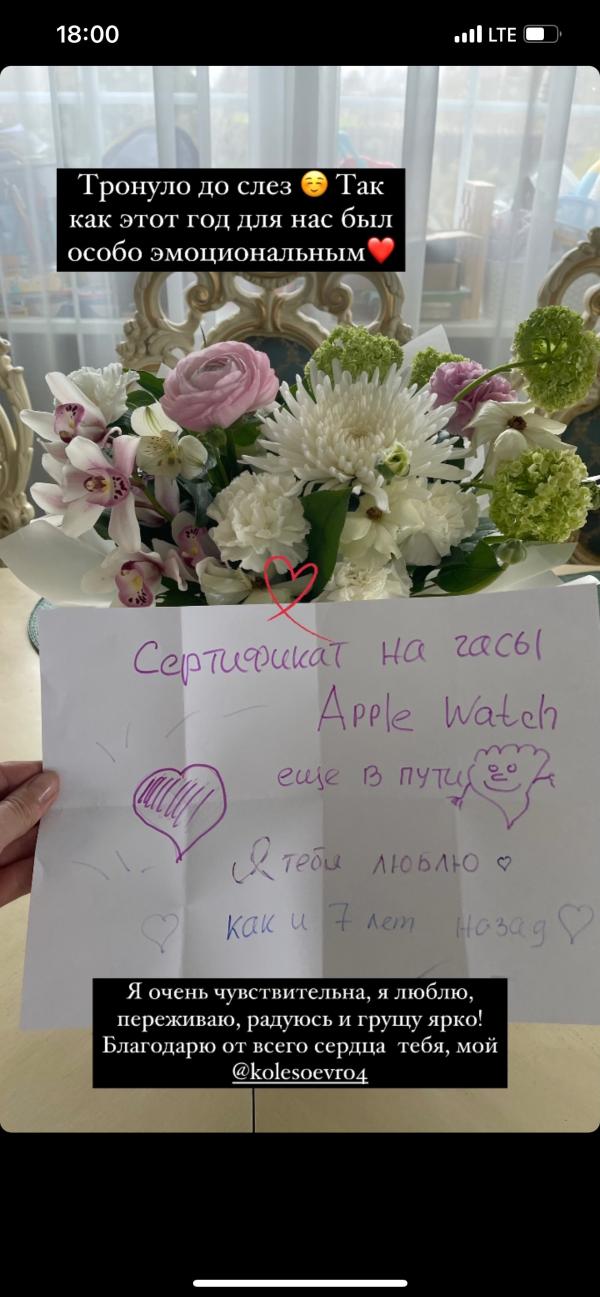 18:00
LTE
Тронуло до слез ☺️ Так
как этот год для нас был
особо эмоциональным❤️
Сертификат на часы
Apple Watch
еще в пути
Я тебя люблю
как и 7 лет назад
Я очень чувствительна, я люблю,
переживаю, радуюсь и грущу ярко!
Благодарю от всего сердца тебя, мой
@kolesoevro4